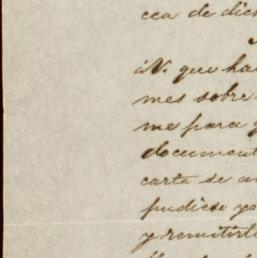 cea de dic
á V. que ha
mes sobre
me para q
document
carta se a
pudiese yo
y remitirl